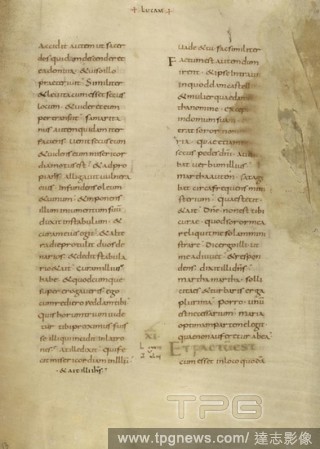 + LUCAM +
Accidit autem ut sacer
dos quidam descenderet
eadem uia, & uiso illo
praeteriit. Similiter
& leuita cum esset secus
locum, & uideret eum
pertransiit. Samarita
nus autem quidam iter
faciens uenit secus eum
& uidens eum misericor
dia motus est, & adpro
pians alligauit uulnera
eius infundens oleum
& uinum, & inponens
illum in iumentum suum
duxit in stabulum, &
curam eius egit, & alte
ra die protulit duos de
narios, & dedit stabula
rio & ait. Curam illius
habe, & quodcumque
supererogaueris, ego
cum rediero reddam tibi
quis horum trium uide
tur tibi proximus fuisse
illi qui incidit in latro
nes. At ille dixit. Qui fe
cit misericordiam in illum
& ait illi ihs
Uade & tu fac similiter
Factum est autem dum
irent, & ipse intrauit
in quoddam castell
& mulier quaedam
martha nomine, excepit
in domum suam
erat soror nomine
ria, quae etiam
secus pedes dni audie
bat uerbum illius
martha autem satage
bat circa frequens mini
sterium. Quae stetit
& ait. Dne non est tibi
curae quod soror mea
reliquit me solam mini
strare. Dic ergo illi ut
me adiuuet, & respon
dens dixit illi dns
martha martha solli
cita es & turbaris erga
plurima. Porro unum
est necessarium. Maria
optimam partem elegit
quae non auferetur ab ea
XI
ET FACTUM EST
cum esset in loco quoda
TPG
www.tpgnews.com | 達志影像